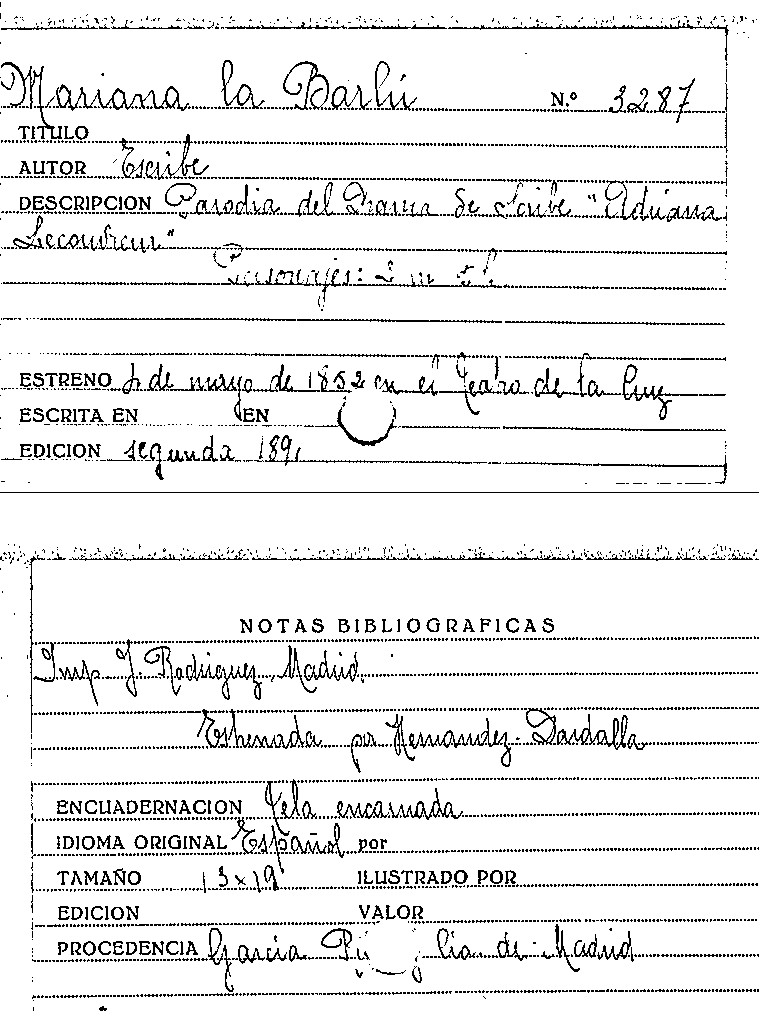 Mariana la Barlú N.º 3287
TITULO
AUTOR Escribe
DESCRIPCION Parodia del Drama de Scribe "Adriana
Lecouvreur"
Personajes: 2 m
ESTRENO de mayo de 1852 en el Teatro de la Cruz
ESCRITA EN EN
EDICION segunda 189
NOTAS BIBLIOGRAFICAS
Imp J. Rodriguez, Madrid.
Estrenada por Hernandez-Dardalla
ENCUADERNACION Tela encarnada
IDIOMA ORIGINAL Español por
TAMAÑO 13x19 ILUSTRADO POR
EDICION VALOR
PROCEDENCIA Garcia de Madrid